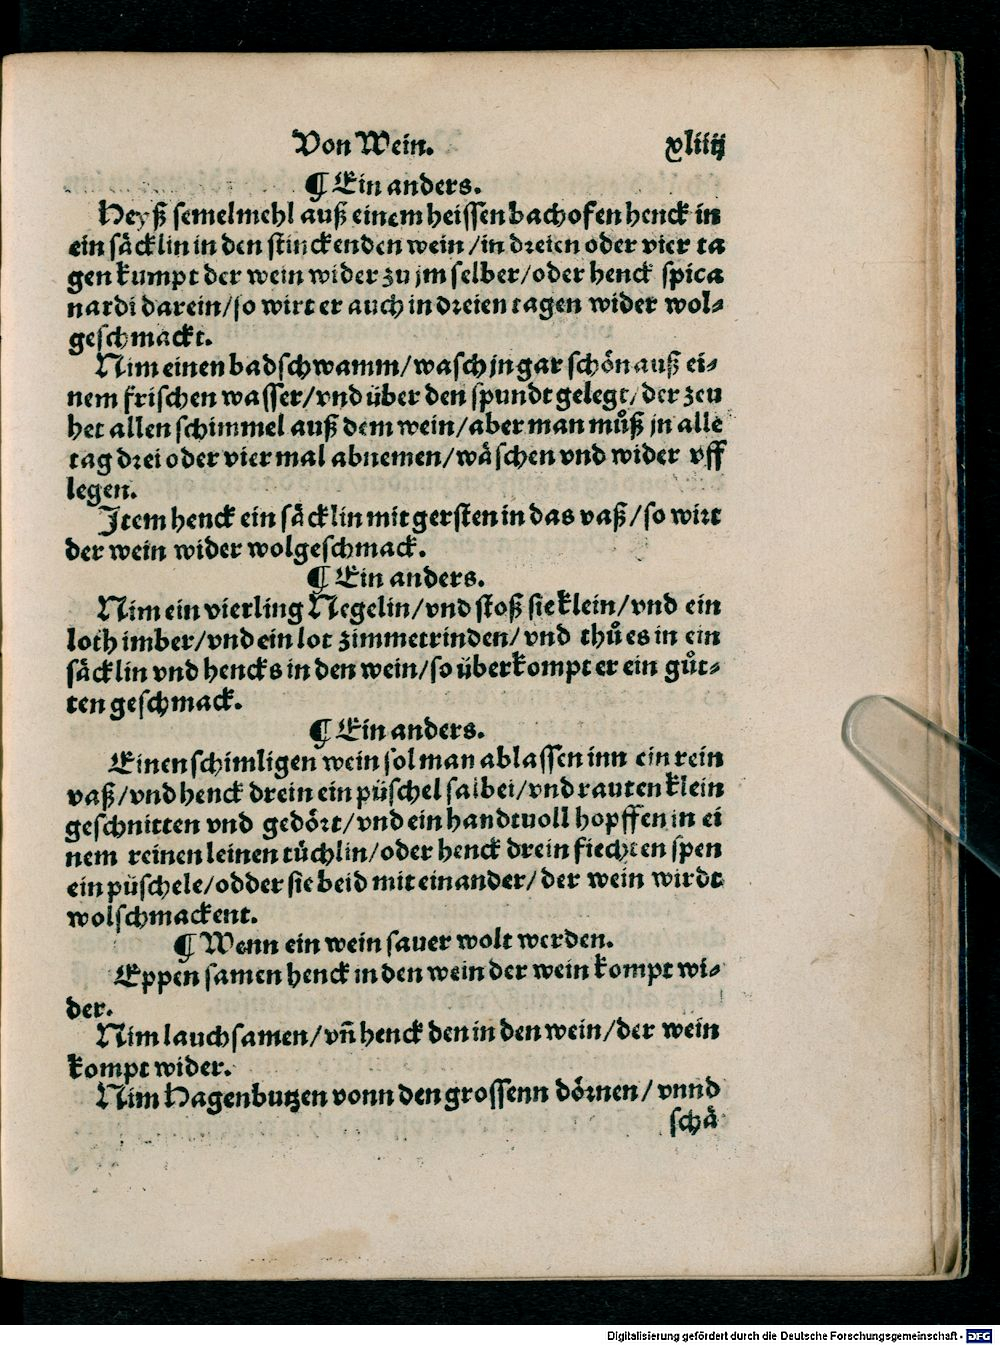 Von Wein. xliiij
¶ Ein anders.
Heyß semelmehl auß einem heissen bachofen henck in
ein säcklin in den stinckenden wein / in dreien oder vier ta
gen kumpt der wein wider zu jm selber / oder henck spica
nardi darein / so wirt er auch in dreien tagen wider wol⸗
geschmackt.
Nim einen badschwamm / wasch jn gar schön auß ei⸗
nem frischen wasser / vnd über den spundt gelegt / der zeu
het allen schimmel auß dem wein / aber man můß jn alle
tag drei oder vier mal abnemen / wäschen vnd wider vff
legen.
Item henck ein säcklin mit gersten in das vaß / so wirt
der wein wider wolgeschmack.
¶ Ein anders.
Nim ein vierling Negelin / vnd stoß sie klein / vnd ein
loth imber / vnd ein lot zimmetrinden / vnd thů es in ein
säcklin vnd hencks in den wein / so überkompt er ein gůt⸗
ten geschmack.
¶ Ein anders.
Einen schimligen wein sol man ablassen inn ein rein
vaß / vnd henck drein ein püschel salbei / vnd rauten klein
geschnitten vnd gedört / vnd ein handtuoll hopffen in ei
nem reinen leinen tüchlin / oder henck drein fiechten spen
ein püschele / odder sie beid mit einander / der wein wirdt
wolschmackent.
¶ Wenn ein wein sauer wolt werden.
Eppen samen henck in den wein der wein kompt wi⸗
der.
Nim lauchsamen / vñ henck den in den wein / der wein
kompt wider.
Nim Hagenbutzen vonn den grossenn dörnen / vnnd
schä
Digitalisierung gefördert durch die Deutsche Forschungsgemeinschaft - DFG